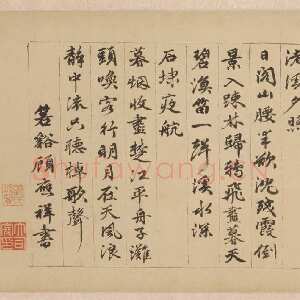 夕照
日閣山腰半欲沈殘霞倒
景入疎林歸鴉飛盡暮天
碧漁笛一聲溪水深
石埭夜航
暮烟收盡楚江平舟子灘
頭喚客行明月在天風浪
靜中流只聽棹歌聲
箬谿顧應祥書